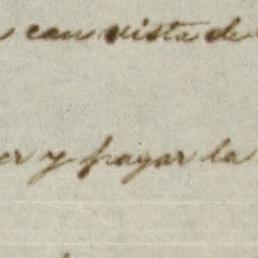 con vista de
er y pagar la